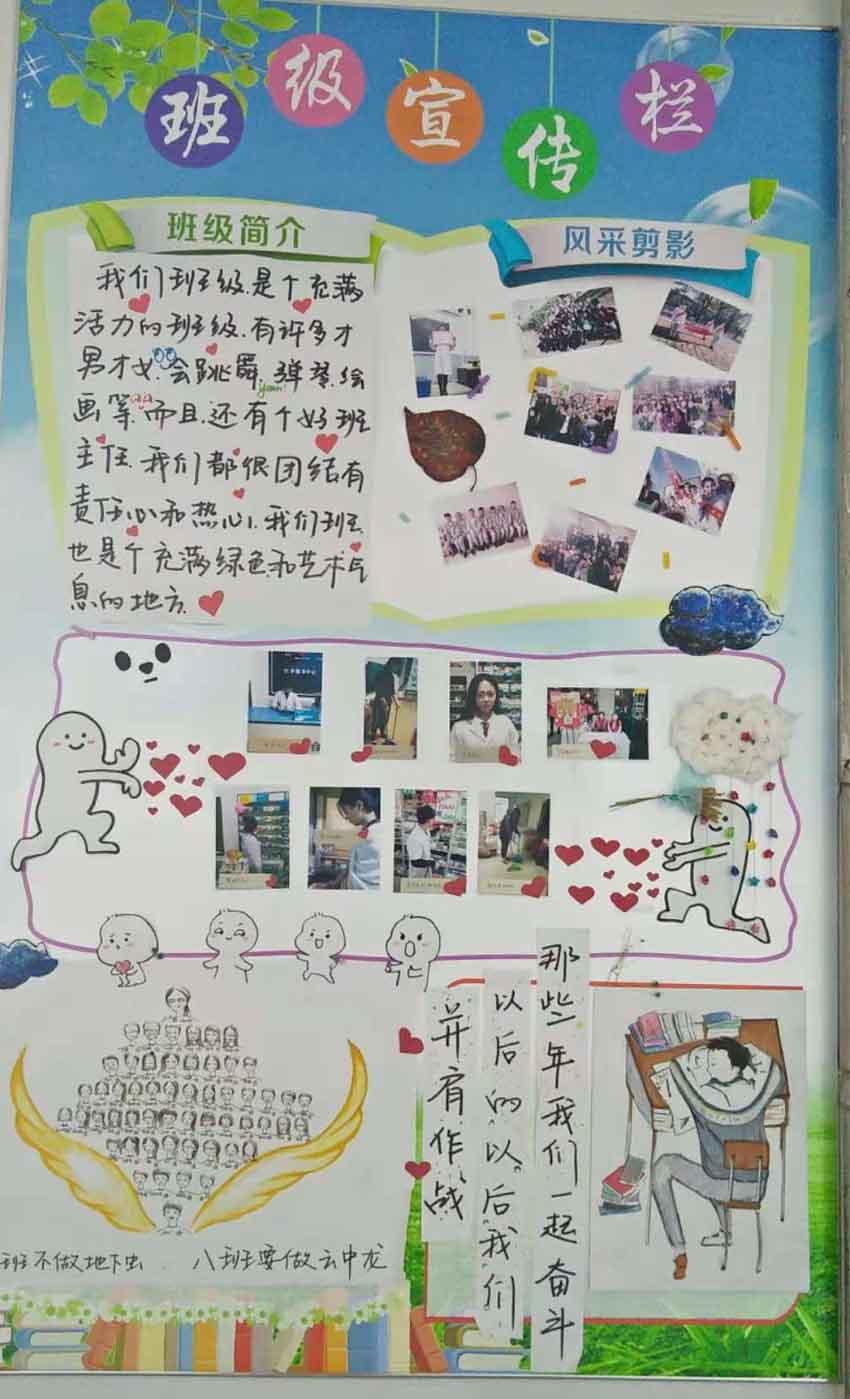 班级宣传栏
班级简介
我们班级是个充满
活力的班级.有许多才
男才女.会跳舞.弹琴.绘
画等.而且.还有个好班
主任.我们都很团结有
责任心和热心.我们班
也是个充满绿色和艺术气
息的地方.
风采剪影
那些年我们一起奋斗
以后的以后我们
并肩作战
班不做地下虫.八班要做云中龙